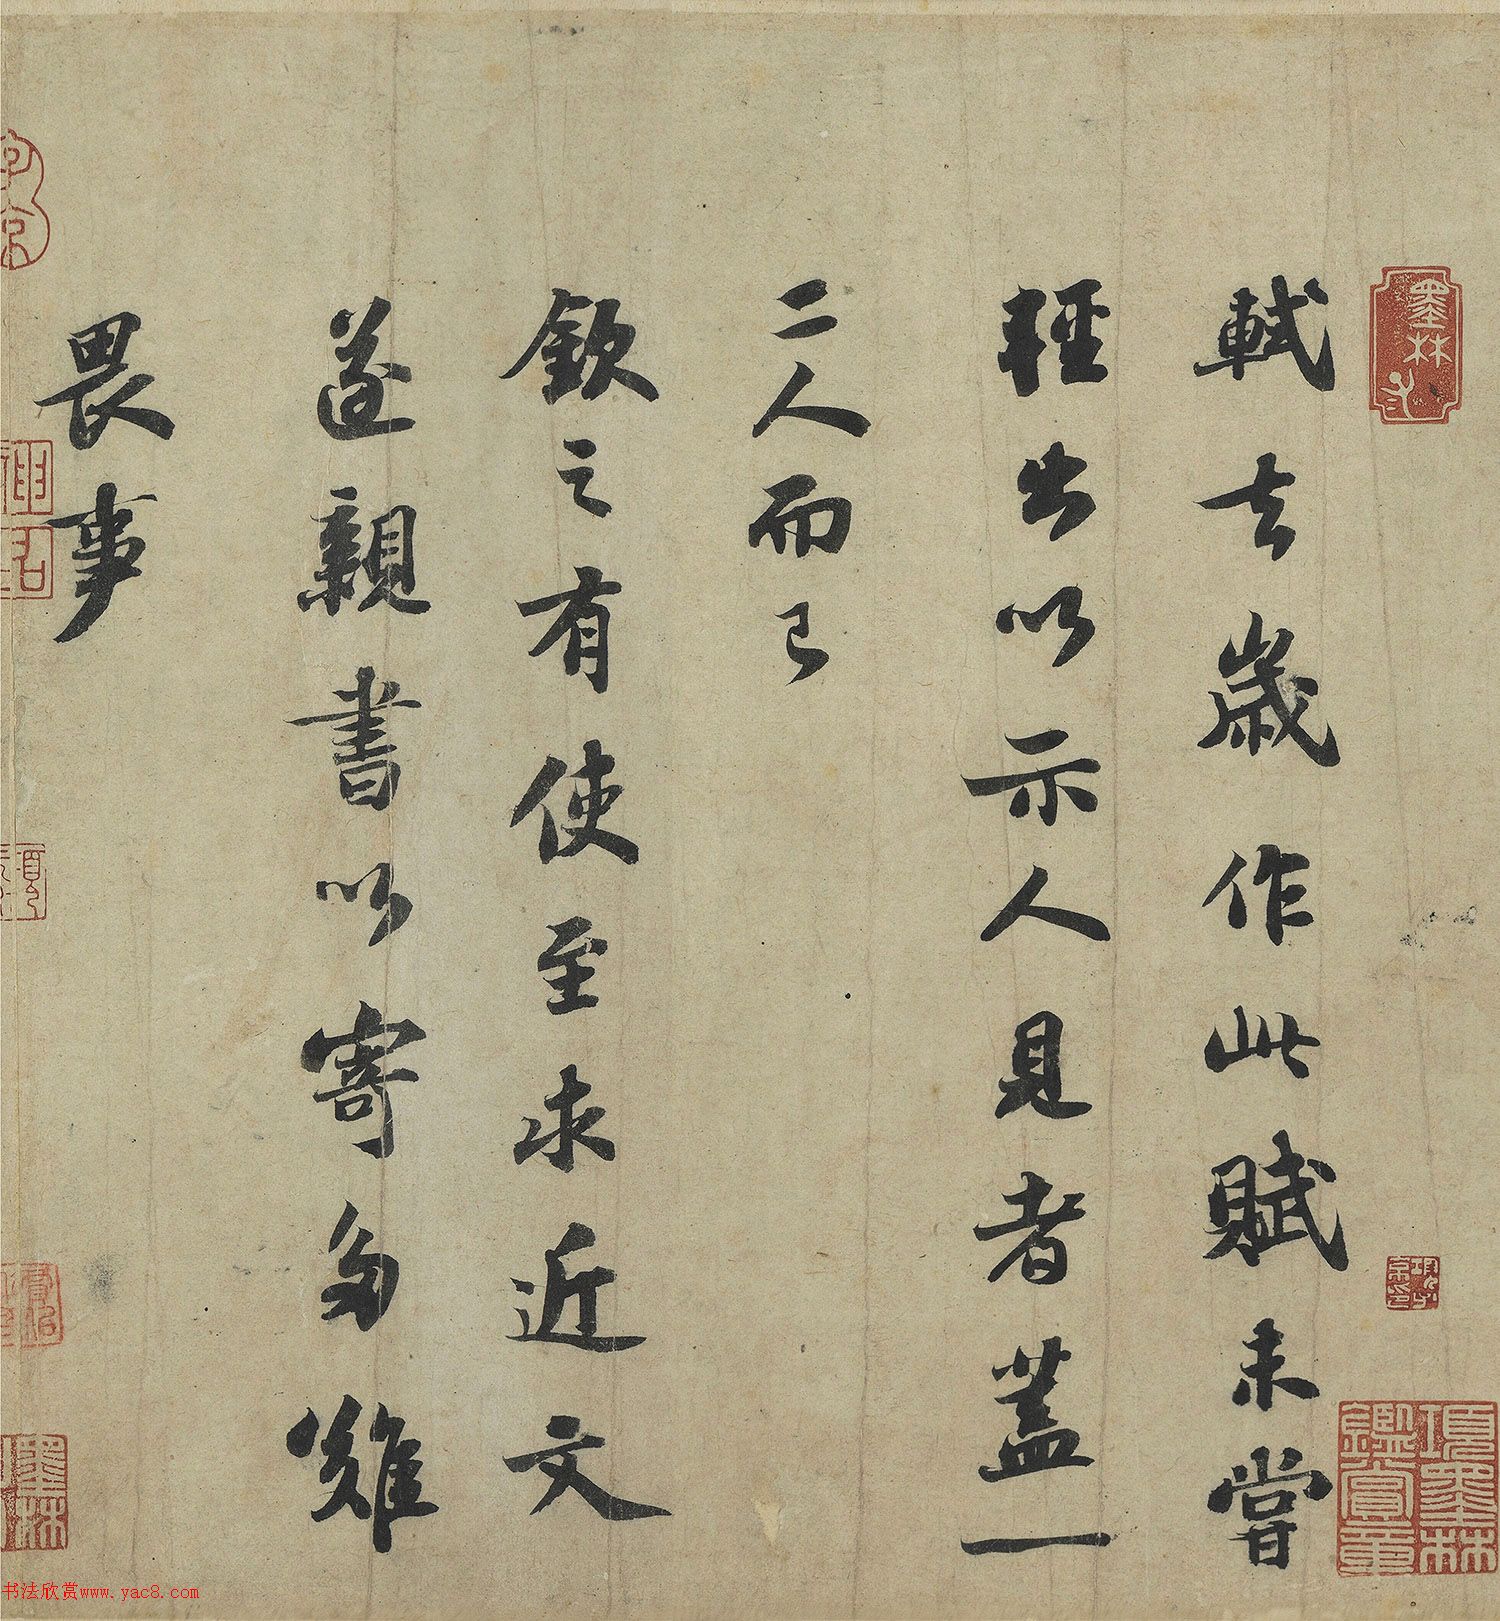 軾去歲作此賦未嘗
輕出以示人見者蓋一
二人而已
欽之有使至求近文
遂親書以寄多難
畏事
墨林
項墨林鑑賞章
子京
墨林
书法欣赏www.yac8.com